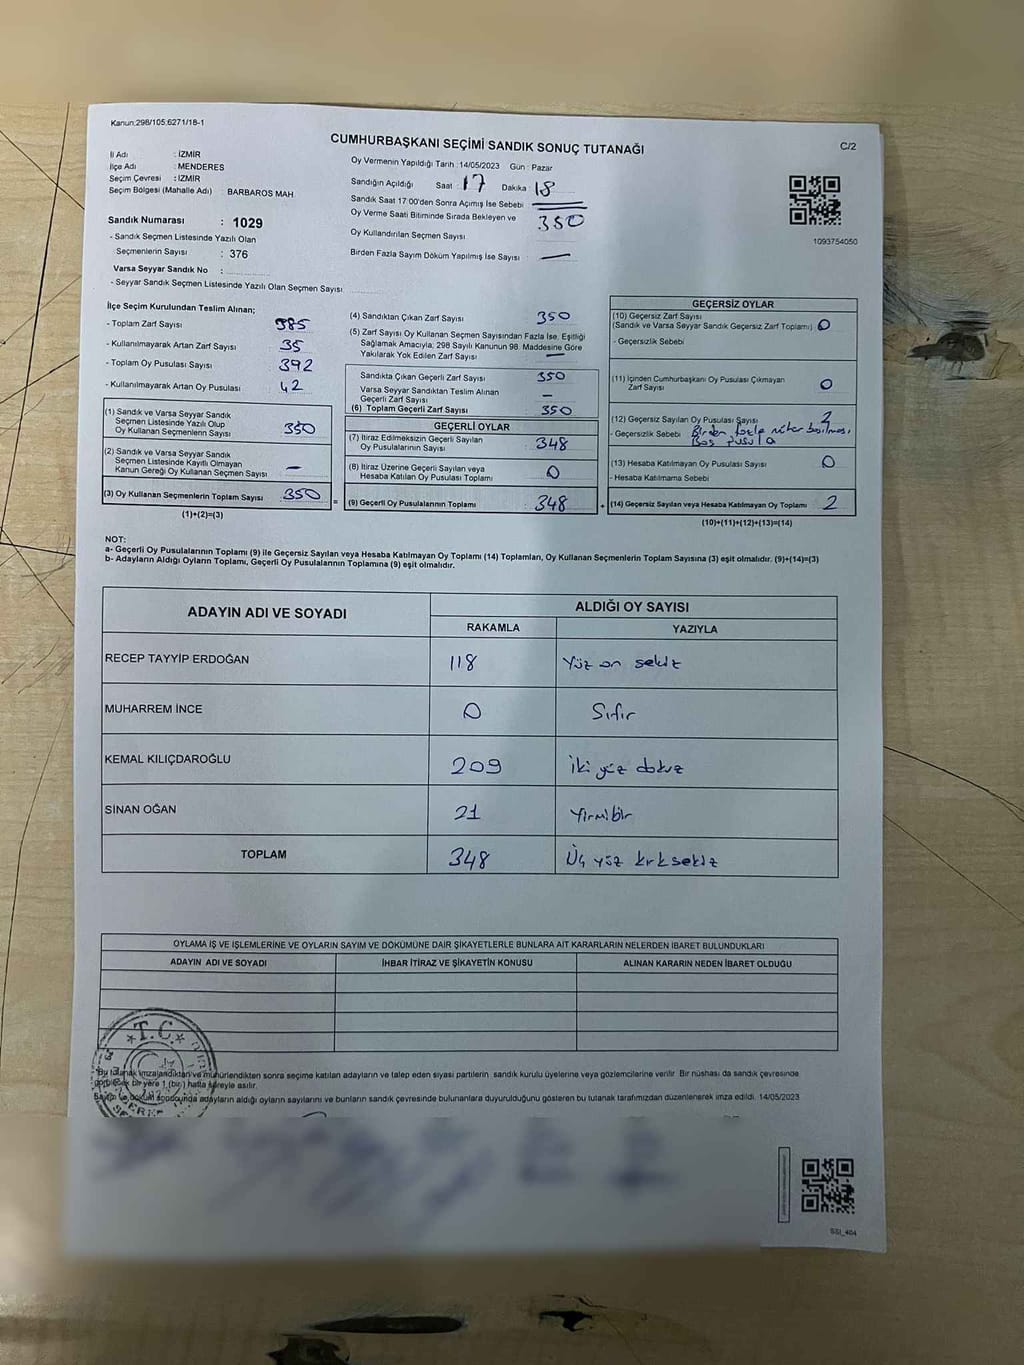 Kanun:298/105:6271/18-1
CUMHURBAŞKANI SEÇİMİ SANDIK SONUÇ TUTANAĞI
C/2
İl Adı : İZMİR
İlçe Adı : MENDERES
Seçim Çevresi : İZMİR
Seçim Bölgesi (Mahalle Adı) : BARBAROS MAH.
Sandık Numarası : 1029
- Sandık Seçmen Listesinde Yazılı Olan
Seçmenlerin Sayısı : 376
Varsa Seyyar Sandık No :
- Seyyar Sandık Seçmen Listesinde Yazılı Olan Seçmen Sayısı:
Oy Vermenin Yapıldığı Tarih :14/05/2023 Gün : Pazar
Sandığın Açıldığı Saat : 17 Dakika : 18
Sandık Saat 17:00'den Sonra Açımış İse Sebebi
Oy Verme Saati Bitiminde Sırada Bekleyen ve
350
Oy Kullandırılan Seçmen Sayısı
Birden Fazla Sayım Döküm Yapılmış İse Sayısı : —
1093754050
İlçe Seçim Kurulundan Teslim Alınan;
- Toplam Zarf Sayısı : 385
- Kullanılmayarak Artan Zarf Sayısı : 35
- Toplam Oy Pusulası Sayısı : 392
- Kullanılmayarak Artan Oy Pusulası : 42
(1) Sandık ve Varsa Seyyar Sandık
Seçmen Listesinde Yazılı Olup
Oy Kullanan Seçmenlerin Sayısı : 350
(2) Sandık ve Varsa Seyyar Sandık
Seçmen Listesinde Kayıtlı Olmayan
Kanun Gereği Oy Kullanan Seçmen Sayısı : —
(3) Oy Kullanan Seçmenlerin Toplam Sayısı : 350
(1)+(2)=(3)
(4) Sandıktan Çıkan Zarf Sayısı : 350
(5) Zarf Sayısı Oy Kullanan Seçmen Sayısından Fazla İse, Eşitliği
Sağlamak Amacıyla; 298 Sayılı Kanunun 98. Maddesine Göre
Yakılarak Yok Edilen Zarf Sayısı : —
Sandıkta Çıkan Geçerli Zarf Sayısı : 350
Varsa Seyyar Sandıktan Teslim Alınan
Geçerli Zarf Sayısı : —
(6) Toplam Geçerli Zarf Sayısı : 350
GEÇERLİ OYLAR
(7) İtiraz Edilmeksizin Geçerli Sayılan
Oy Pusulalarının Sayısı : 348
(8) İtiraz Üzerine Geçerli Sayılan veya
Hesaba Katılan Oy Pusulası Toplamı : 0
= (9) Geçerli Oy Pusulalarının Toplamı : 348
GEÇERSİZ OYLAR
(10) Geçersiz Zarf Sayısı
(Sandık ve Varsa Seyyar Sandık Geçersiz Zarf Toplamı) : 0
- Geçersizlik Sebebi
(11) İçinden Cumhurbaşkanı Oy Pusulası Çıkmayan
Zarf Sayısı : 0
(12) Geçersiz Sayılan Oy Pusulası Sayısı : 2
- Geçersizlik Sebebi : Birden fazla mühür basılması,
Boş pusula
(13) Hesaba Katılmayan Oy Pusulası Sayısı : 0
- Hesaba Katılmama Sebebi
+ (14) Geçersiz Sayılan veya Hesaba Katılmayan Oy Toplamı : 2
(10)+(11)+(12)+(13)=(14)
NOT:
a- Geçerli Oy Pusulalarının Toplamı (9) ile Geçersiz Sayılan veya Hesaba Katılmayan Oy Toplamı (14) Toplamları, Oy Kullanan Seçmenlerin Toplam Sayısına (3) eşit olmalıdır. (9)+(14)=(3)
b- Adayların Aldığı Oyların Toplamı, Geçerli Oy Pusulalarının Toplamına (9) eşit olmalıdır.
ADAYIN ADI VE SOYADI
ALDIĞI OY SAYISI
RAKAMLA YAZIYLA
RECEP TAYYİP ERDOĞAN 118 Yüz on sekiz
MUHARREM İNCE 0 Sıfır
KEMAL KILIÇDAROĞLU 209 İki yüz dokuz
SİNAN OĞAN 21 Yirmibir
TOPLAM 348 Üç yüz kırksekiz
OYLAMA İŞ VE İŞLEMLERİNE VE OYLARIN SAYIM VE DÖKÜMÜNE DAİR ŞİKAYETLERLE BUNLARA AİT KARARLARIN NELERDEN İBARET BULUNDUKLARI
ADAYIN ADI VE SOYADI İHBAR İTİRAZ VE ŞİKAYETİN KONUSU ALINAN KARARIN NEDEN İBARET OLDUĞU
T.C.
Bu tutanak imzalandıktan ve mühürlendikten sonra seçime katılan adayların ve talep eden siyasi partilerin sandık kurulu üyelerine veya gözlemcilerine verilir. Bir nüshası da sandık çevresinde
görülecek bir yere 1 (bir) hafta süreyle asılır.
Sayım ve döküm sonucunda adayların aldığı oyların sayılarını ve bunların sandık çevresinde bulunanlara duyurulduğunu gösteren bu tutanak tarafımızdan düzenlenerek imza edildi. 14/05/2023
SSI_404